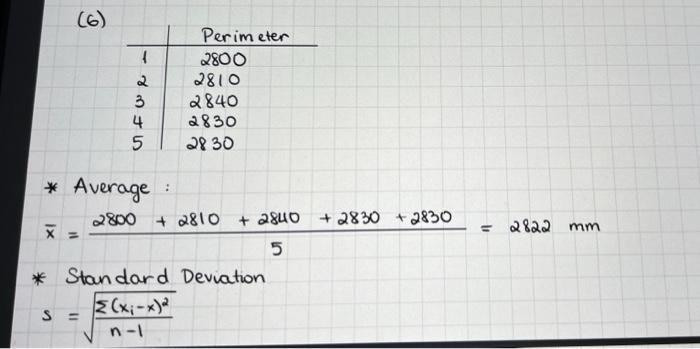 (6)
Perimeter
1 2800
2 2810
3 2840
4 2830
5 2830
* Average :
x̄ = (2800 + 2810 + 2840 + 2830 + 2830) / 5 = 2822 mm
* Standard Deviation
s = √(Σ(xᵢ-x)² / n-1)